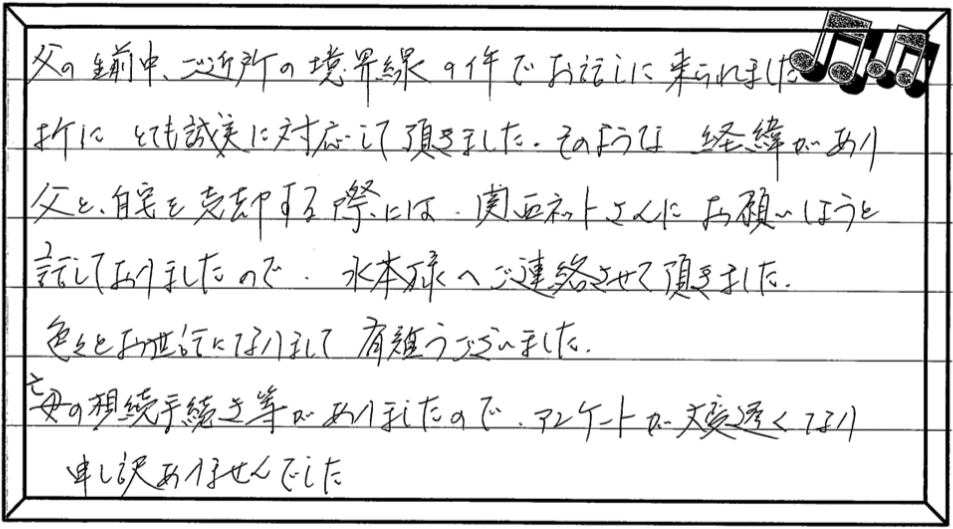 父の生前中、ご近所の境界線の件でお話しに来られました
折に とても誠実に対応して頂きました。そのような 経緯があり
父と、自宅を売却する際には、関西ネットさんにお願いしようと
話しておりましたので、水本様へご連絡させて頂きました。
色々とお世話になりまして有難うございました。
亡母の相続手続き等がありましたので、アンケートが大変遅くなり
申し訳ありませんでした